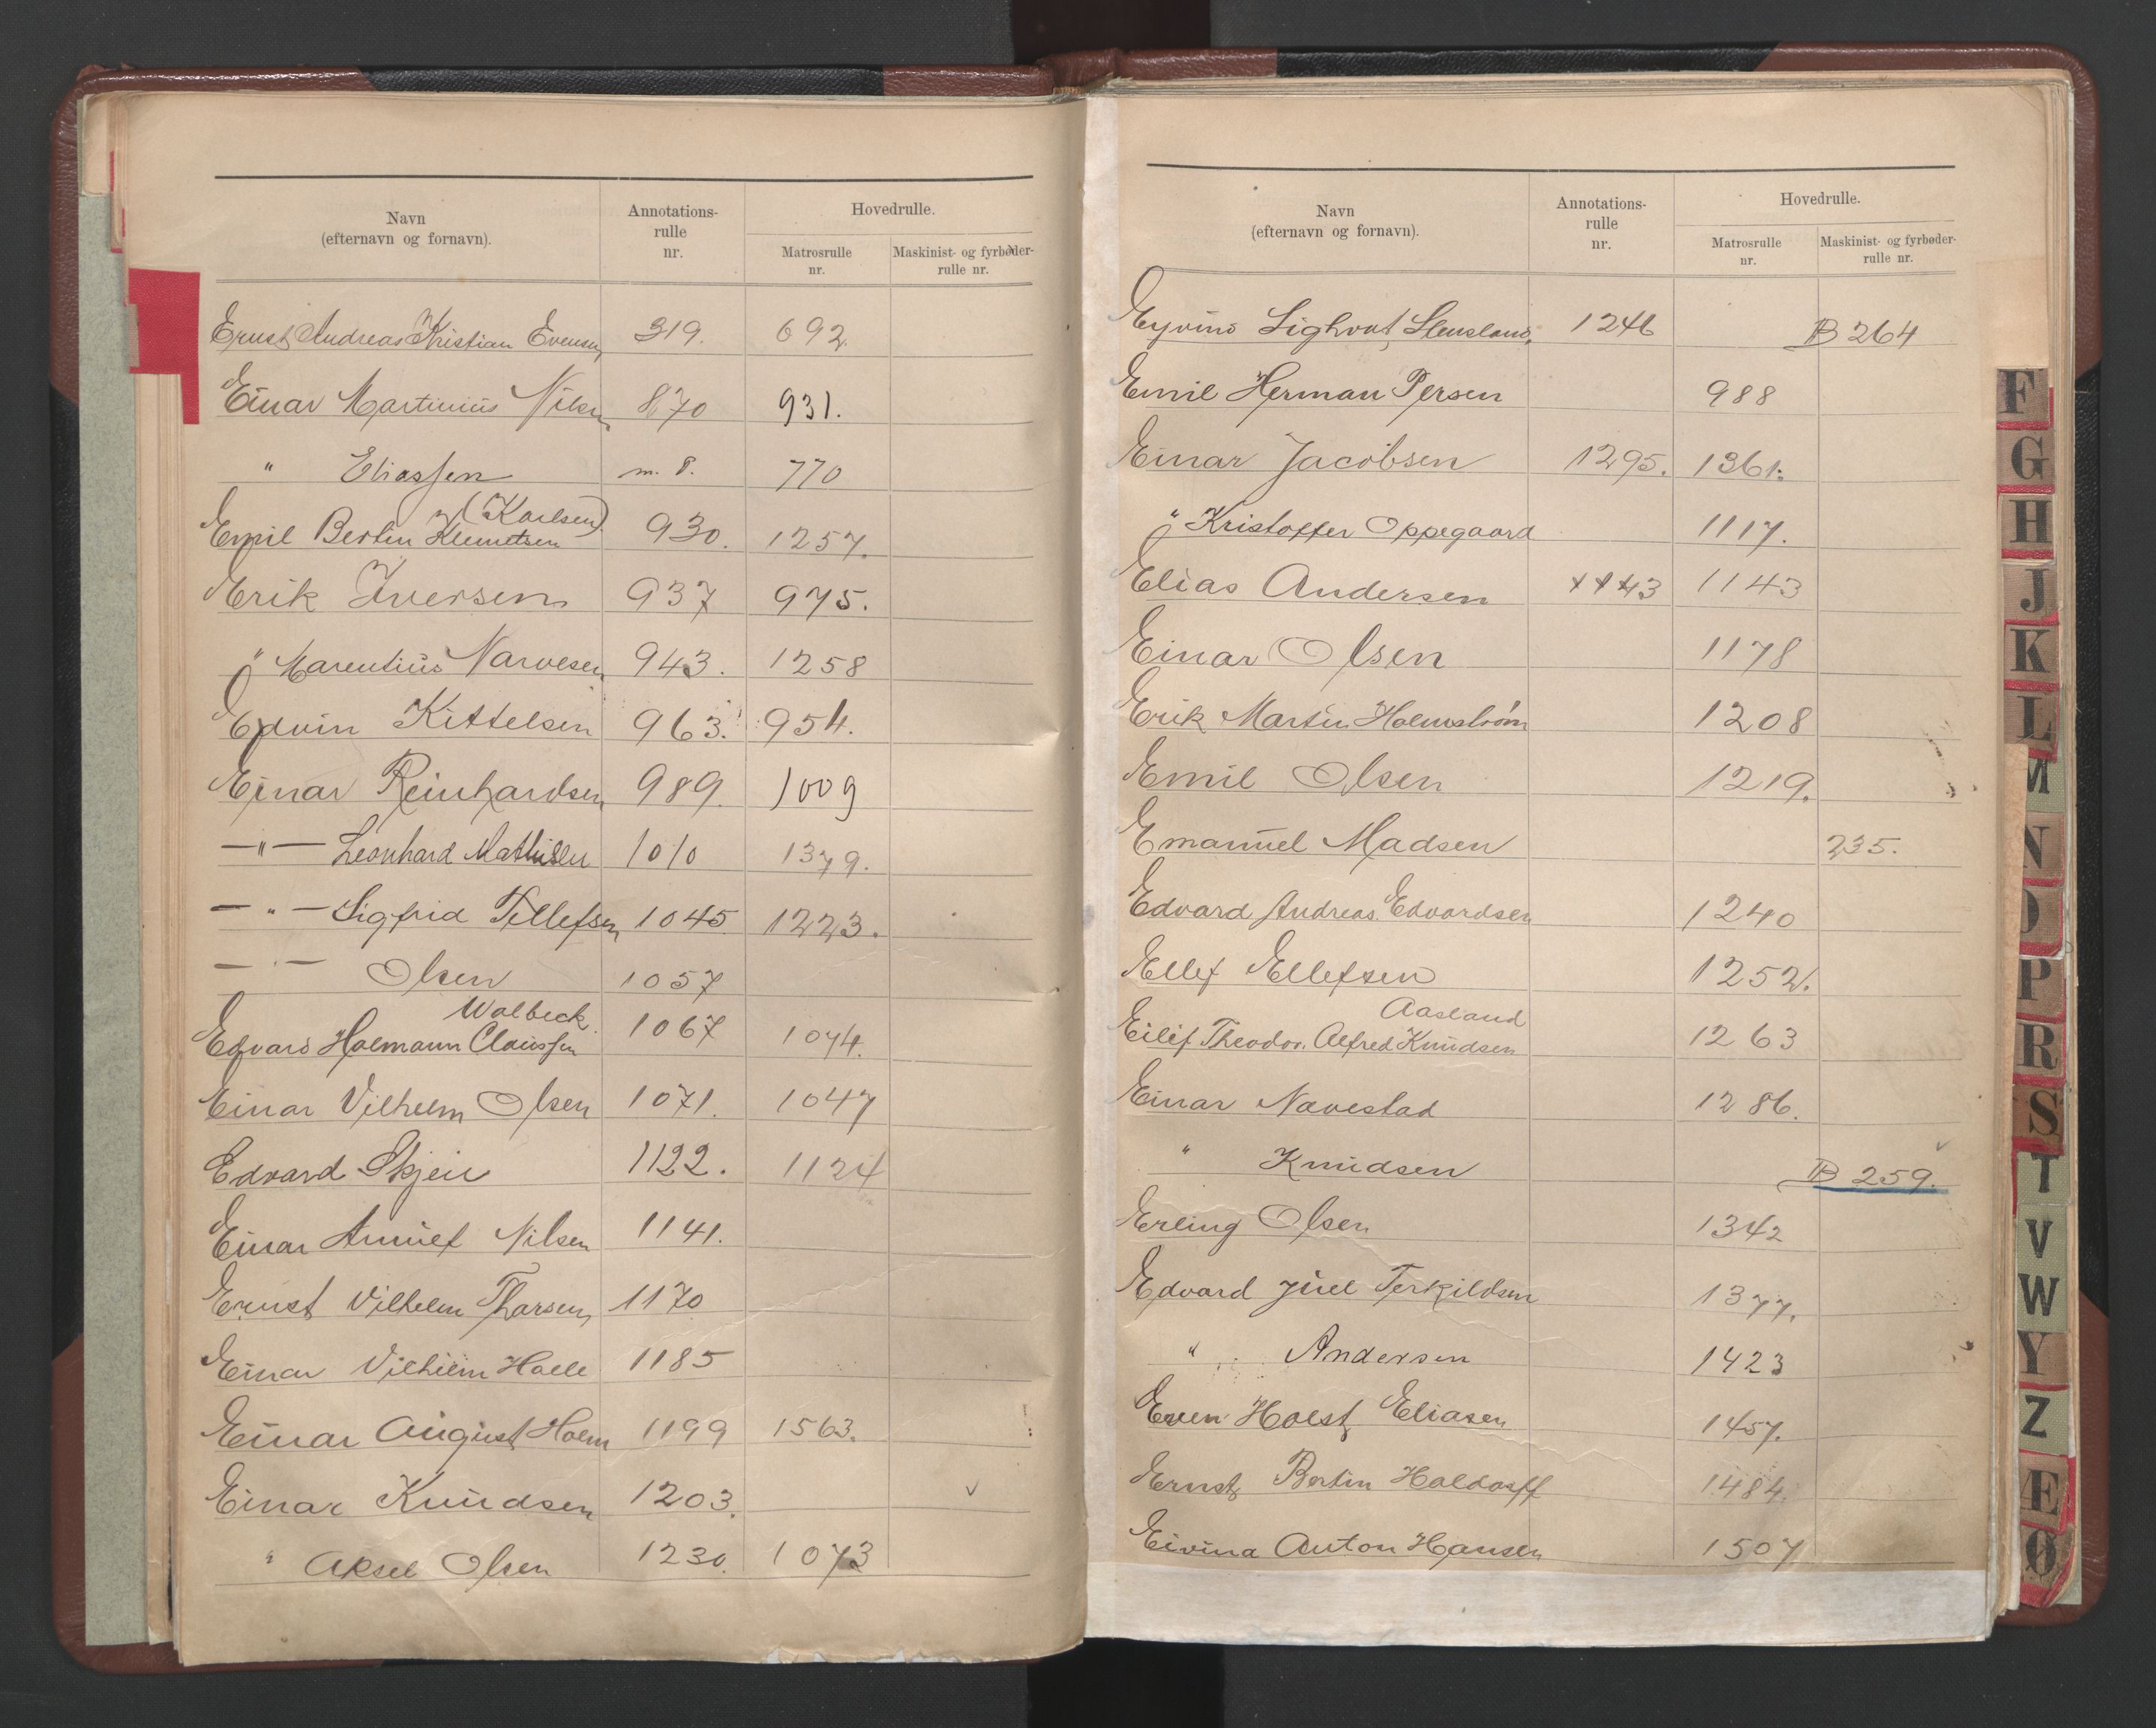 Navn (efternavn og fornavn). Annotations-rulle nr. Hovedrulle. Matrosrulle nr. Maskinist- og fyrbøder-rulle nr.
Ernst Andreas Kristian Evensen 319. 692.
Einar Martinius Nilsen 870 931.
" Eliassen m. 8. 770
(Karlsen)
Emil Bertin Klemetsen 930. 1257.
Erik Iversen 937 975.
" Marentius Narvesen 943. 1258
Edvin Kittelsen 963. 954.
Einar Reinhardsen 989. 1009
—"— Leonhard Mathisen 1010 1379.
—"— Sigfrid Tellefsen 1045 1223.
—"— Olsen 1057
Walbeck
Edvard Holmann Claussen 1067 1074.
Einar Vilhelm Olsen 1071. 1047
Edvard Skjeie 1122. 1124
Einar Nilsen 1141.
Ernst Vilhelm Tharsen 1170
Einar Vilhelm Halle 1185
Einar August Holm 1199 1563.
Einar Knudsen 1203. v
" Aksel Olsen 1230. 1073
Navn (efternavn og fornavn). Annotations-rulle nr. Hovedrulle. Matrosrulle nr. Maskinist- og fyrbøder-rulle nr.
Eyvind Sighvat Stensland 1246 B 264
Emil Herman Persen 988
Einar Jacobsen 1295. 1361.
" Kristoffer Oppegaard 1117.
Elias Andersen 1143 1143
Einar Olsen 1178
Erik Martin Holmstrøm 1208
Emil Olsen 1219.
Emanuel Madsen 235.
Edvard Andreas Edvardsen 1240
Ellef Ellefsen 1252.
Aasland
Eilif Theodor Alfred Knudsen 1263
Einar Navestad 1286.
" Knudsen B 259.
Erling Olsen 1342
Edvard Juel Terkildsen 1377.
" Andersen 1423
Even Holst Eliasen 1457.
Ernst Bertin Holdorff 1484.
Eivind Anton Hansen 1507
F
G
H
J
K
L
M
N
O
P
R
S
T
V
W
Y
Z
Æ
Ø